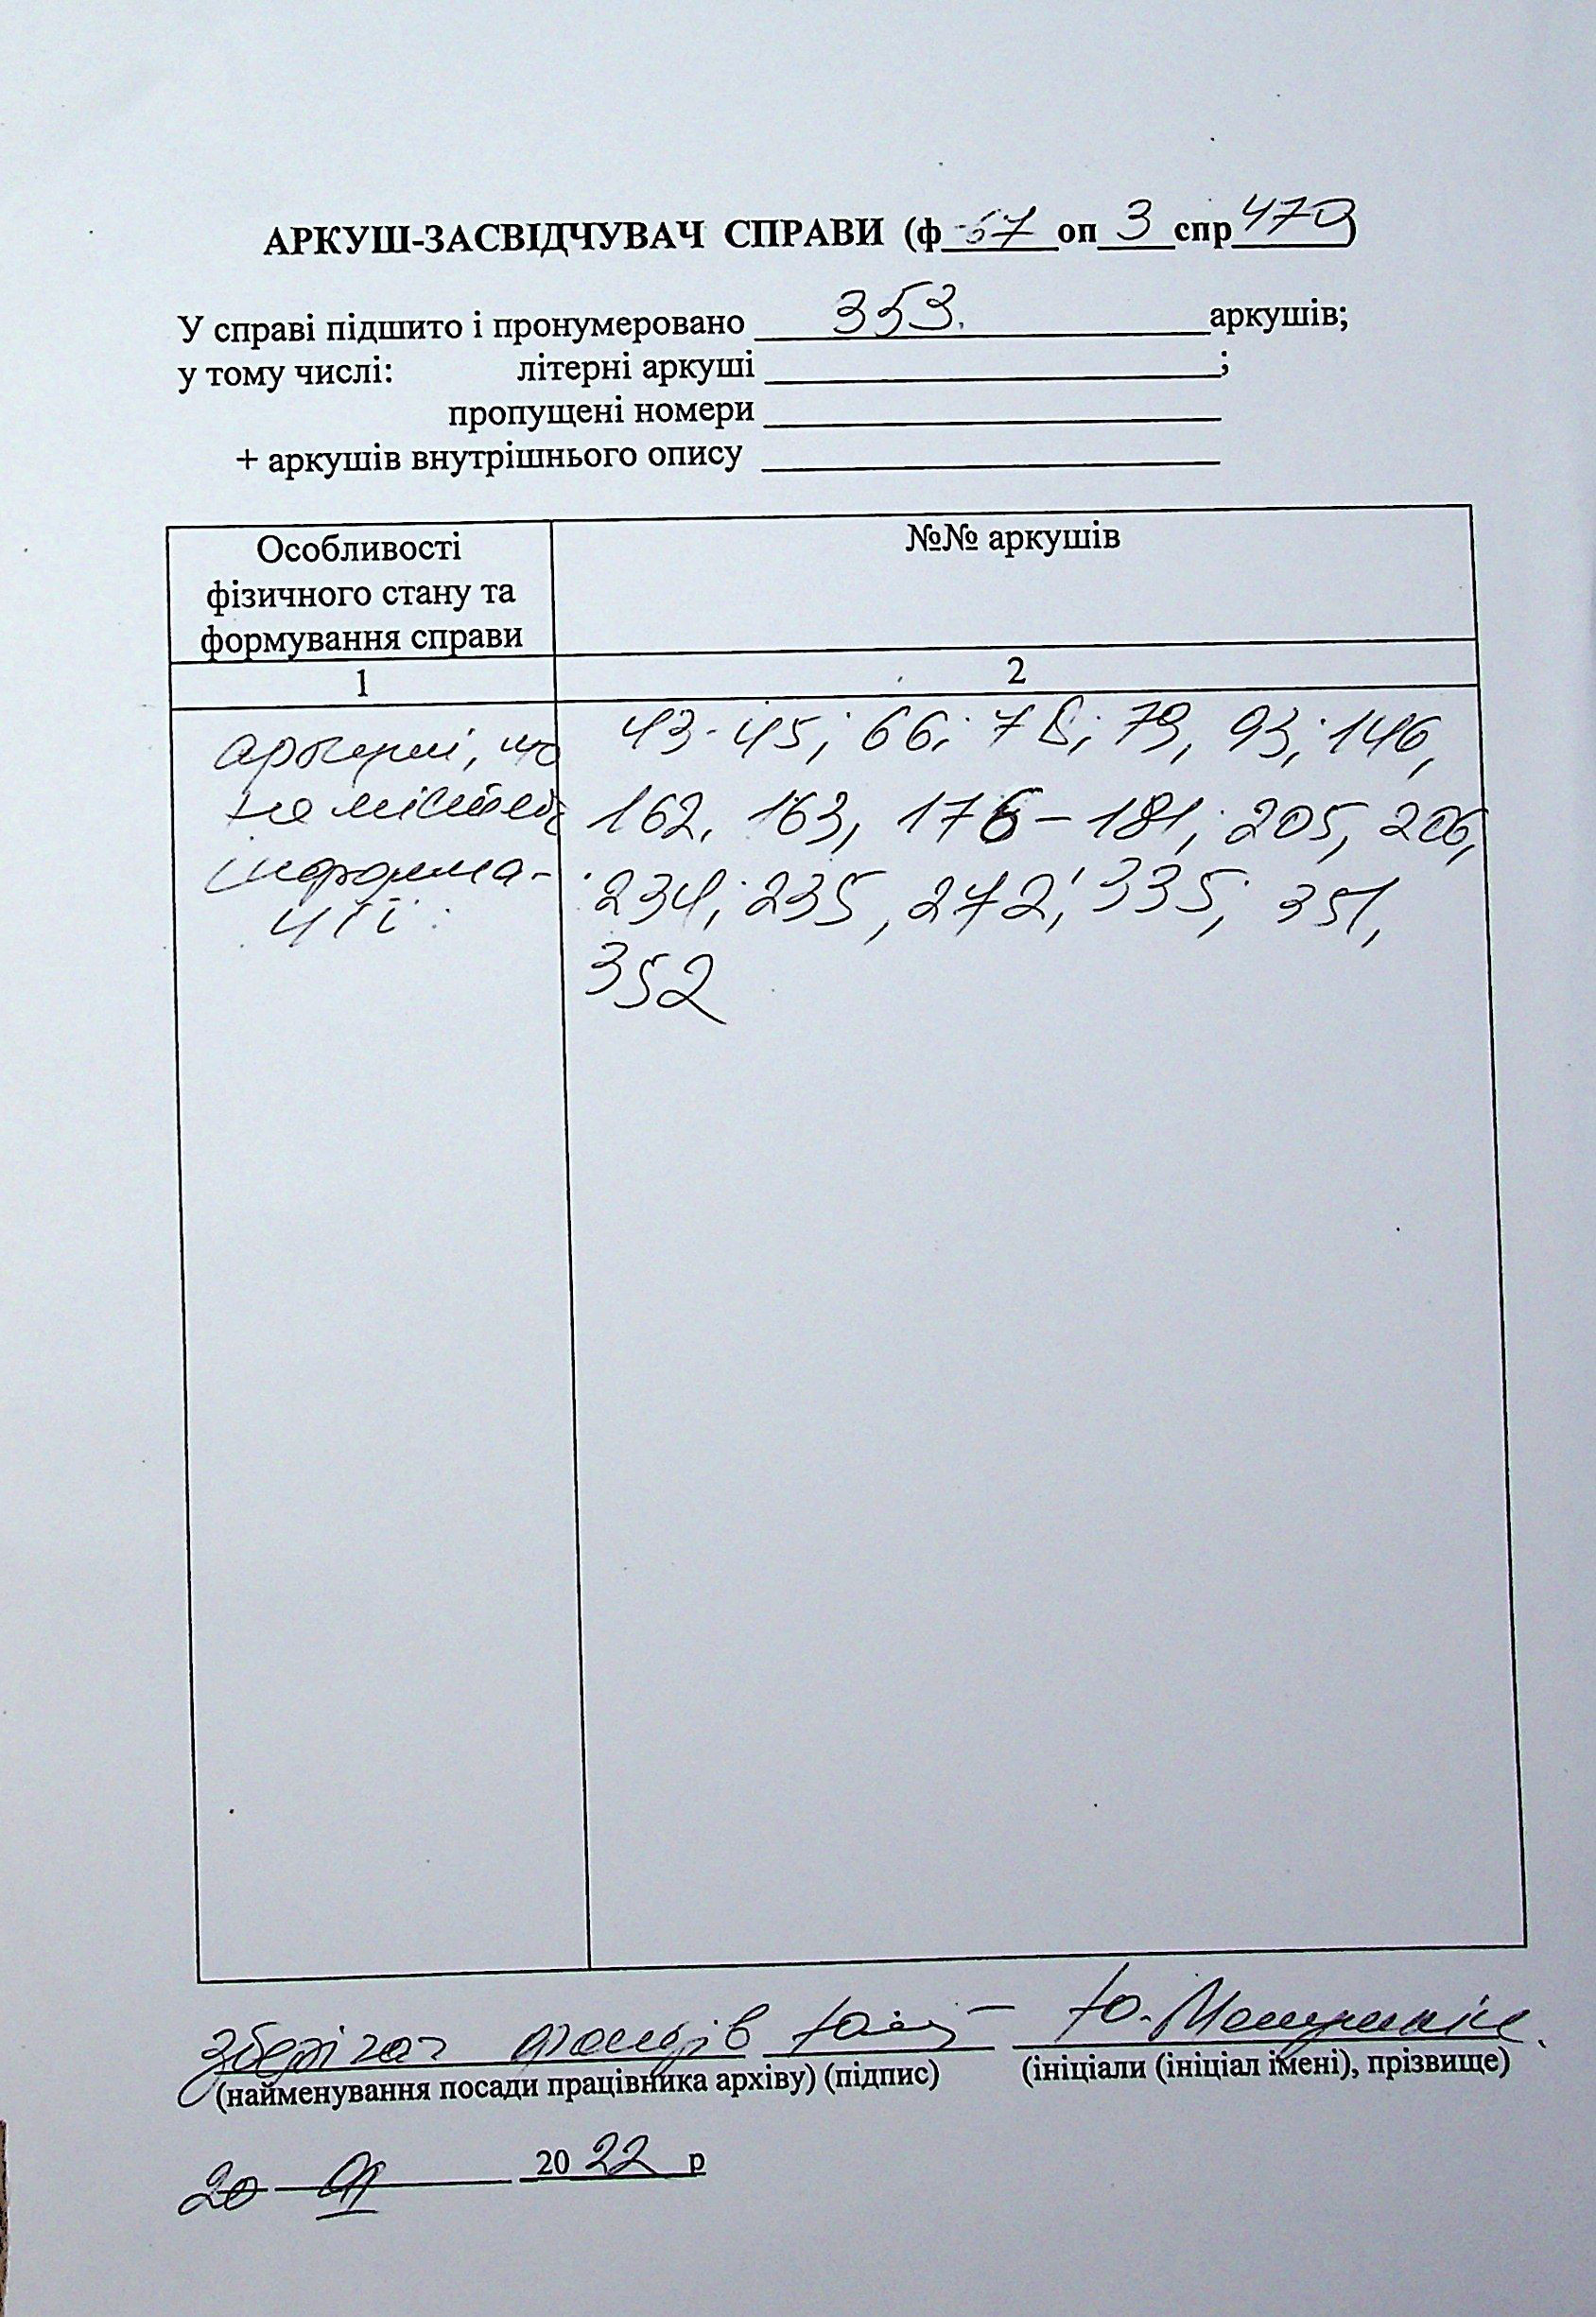 АРКУШ-ЗАСВІДЧУВАЧ СПРАВИ (ф 67 оп 3 спр 470)
У справі підшито і пронумеровано 353. аркушів;
у тому числі: літерні аркуші ;
пропущені номери
+ аркушів внутрішнього опису
Особливості
фізичного стану та
формування справи
№№ аркушів
1
2
аркуші, що
не містять
інформа-
ції:
43-45; 66; 78; 79, 93; 146,
162, 163, 176-181; 205, 206,
234; 235, 272; 335; 351,
352
зберігач фондів Ю.
(найменування посади працівника архіву) (підпис) (ініціали (ініціал імені), прізвище)
20 2022 р